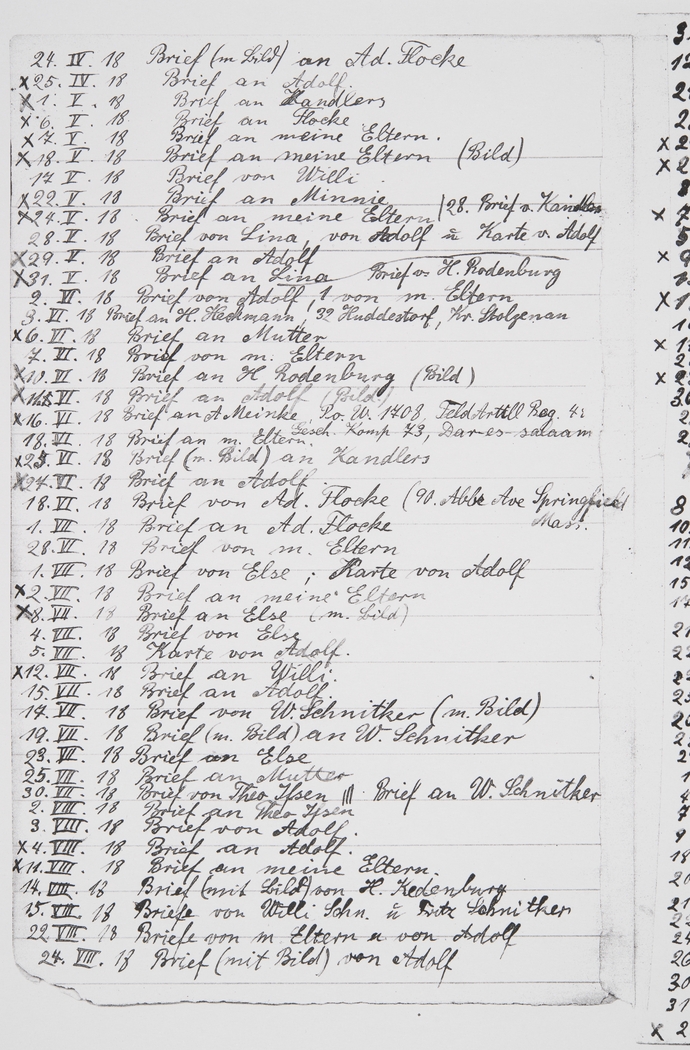 24. IV. 18 Brief (m Bild) an Ad. Flocke
x 25. IV. 18 Brief an Adolf.
x 1. V. 18 Brief an Kandlers
x 6. V. 18 Brief an Flocke
x 7. V. 18 Brief an meine Eltern.
x 18. V. 18 Brief an meine Eltern (Bild)
17 V 18 Brief von Willi
x 22. V. 18 Brief an Minnie
x 24. V. 18. Brief an meine Eltern | 28. Brief v. Kandlers
28. V. 18 Brief von Lina, von Adolf ū Karte v. Adolf
x 29 V. 18 Brief an Adolf
x 31. V. 18 Brief an Lina Brief v. H. Rodenburg
2. VI. 18 Brief von Adolf, 1 von m. Eltern
3. VI. 18 Brief an H. Heckmann, 32 Huddestorf, Kr. Stolzenau
x 6. VI. 18 Brief an Mutter
7. VI. 18 Brief von m. Eltern
x 10. VI. 18 Brief an H Rodenburg (Bild)
x VI 18 Brief an Adolf (Bild.)
x 16. VI. 18 Brief an A Meinke, P.o. W. 1708, Feld Artill Reg. 45
18. VI. 18 Brief an m. Eltern. Gesch. Komp 73, Dar-es-salaam
x VI. 18 Brief (m. Bild) an Kandlers
x 27. VI. 18 Brief an Adolf.
18. VI. 18 Brief von Ad. Flocke (90. Abbe Ave Springfield
1. VII 18 Brief an Ad. Flocke Mass.
28. VI. 18 Brief von m. Eltern
1. VII. 18 Brief von Else; Karte von Adolf
x 2. VII. 18 Brief an meine Eltern
x 8. VII. 18 Brief an Else (m. Bild)
4. VII. 18 Brief von Else
5. VII. 18 Karte von Adolf.
x 12. VII. 18 Brief an Willi.
15. VII. 18 Brief an Adolf.
14. VII. 18 Brief von W. Schnitker (m. Bild)
19. VII. 18 Brief (m. Bild) an W. Schnitker
23. VII. 18 Brief an Else
25. VII. 18 Brief an Mutter
30. VII. 18 Brief von Theo Ifsen /// Brief an W. Schnitker
2. VIII. 18 Brief an Theo Ifsen
3. VIII. 18 Brief von Adolf.
x 4. VIII. 18 Brief an Adolf.
x 11. VIII. 18 Brief an meine Eltern.
14. VIII. 18 Brief (mit Bild) von H. Redenburg
15. VIII. 18 Briefe von Willi Schn. ū Fritz Schnitker
22. VIII. 18 Briefe von m Eltern u von Adolf
24. VIII. 18 Brief (mit Bild) von Adolf